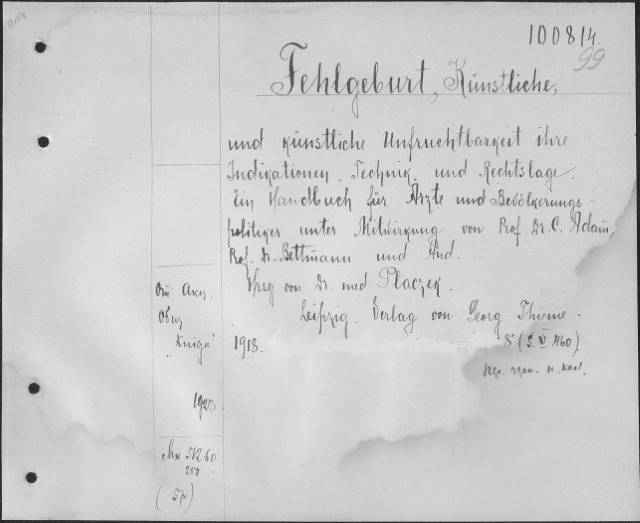 100814.
99
Fehlgeburt, Künstliche,
und künstliche Unfruchtbarkeit ihre
Indikationen Technik und Rechtslage.
Ein Handbuch für Ärzte und Bevölkerungs-
politiker unter Mitwirkung von Prof Dr. C. Adam,
Prof. Dr. Bettmann und And.
Hrsg von Dr. med Placzek.
Leipzig. Verlag von Georg Thieme.
1918.
8° (S. XI 460)
От Акц.
Общ
"Kniga"
1923